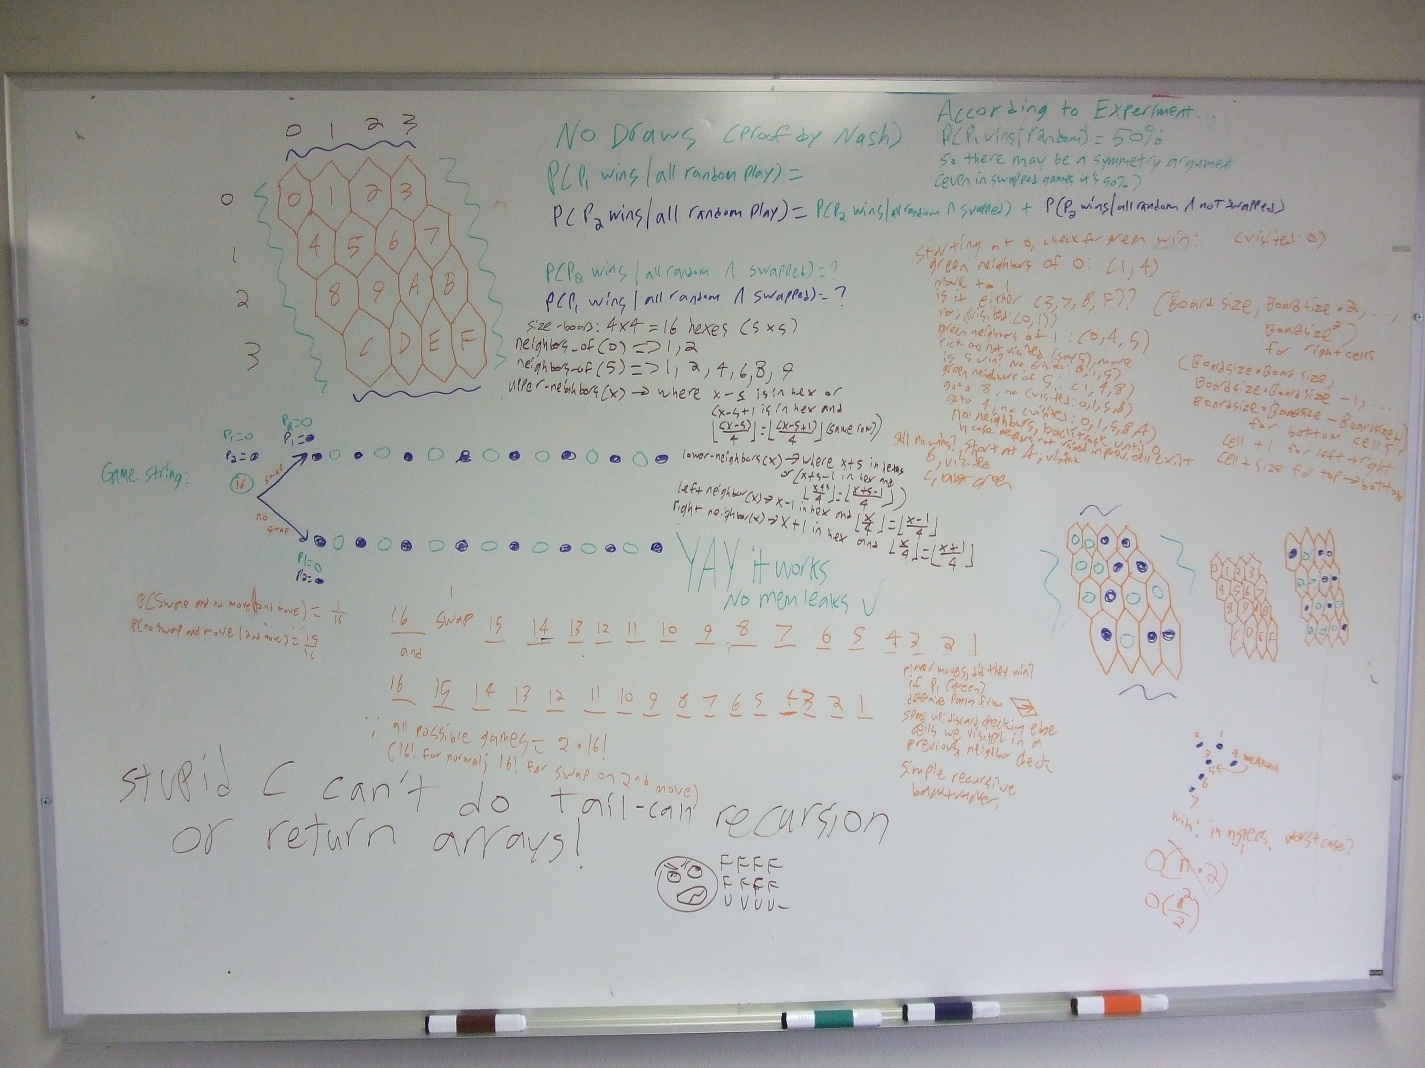 0 1 2 3
0
1
2
3
0 1 2 3
4 5 6 7
8 9 A B
C D E F
No Draws (Proof by Nash)
P(P1 wins | all random play) =
P(P2 wins | all random play) = P(P2 wins | all random ∧ swapped) + P(P2 wins | all random ∧ not swapped)
P(P2 wins | all random ∧ swapped) = ?
P(P1 wins | all random ∧ swapped) = ?
According to Experiment...
P(P1 wins | random) = 50%
so there may be a symmetry argument
(even in swapped games it's 50%?)
size-board: 4x4 = 16 hexes (5x5)
neighbors_of(0) => 1, 2
neighbors_of(5) => 1, 2, 4, 6, 8, 9
upper-neighbors(x) → where x-5 is in hex or
(x-5+1 is in hex and
⌊(x-5)/4⌋ = ⌊(x-5+1)/4⌋ (same row))
lower-neighbors(x) → where x+5 in hexes
or (x+5-1 in hex and
⌊x+5/4⌋ = ⌊x+5-1/4⌋)
left neighbor(x) → x-1 in hex and ⌊x/4⌋ = ⌊x-1/4⌋
right neighbor(x) → x+1 in hex and ⌊x/4⌋ = ⌊x+1/4⌋
Starting at 0, check for green win: (visited: 0)
green neighbors of 0: (1, 4)
move to 1
is it either (3, 7, B, F)??
no, (visited: (0, 1))
green neighbors of 1: (0, 4, 5)
pick one not visited (say 5), move
is 5 win? no (visited: 0, 1, 5)
green neighbors of 5: (1, 4, 8)
goto 8, no (visited: 0, 1, 5, 8)
goto 4, no (visited: 0, 1, 5, 8, 4)
no neighbors, backtrack until 0
still no win? start at 4, visited
8, visited
C, not green
(Boardsize, Boardsize·2, ...,
Boardsize²)
for right cells
(Boardsize·Boardsize,
Boardsize·Boardsize - 1, ...
Boardsize·Boardsize - Boardsize+1)
for bottom cells
cell + 1 for left → right
cell + size for top → bottom
Game string:
P1=
P2=
P2=
P1=
16
swap
no
swap
P1=
P2=
YAY it works
No mem leaks ✓
P(swap and no move | 2nd move) = 1/16
P(no swap and move | 2nd move) = 15/16
1
16 swap 15 14 13 12 11 10 9 8 7 6 5 4 3 2 1
and
16 15 14 13 12 11 10 9 8 7 6 5 4 3 2 1
∴ all possible games = 2·16!
(16! for normal, 16! for swap on 2nd move)
player moves, did they win?
if P1 (green)
determine path from
speed up: discard checking edge
cells we visited in a
previous neighbor check
simple recursive
backtracker.
0 1 2 3
4 5 6 7
8 9 A B
C D E F
2 1
3 4 backtrack
5
6
7
win! in n steps. worst case?
O(n·2)
O(n²/2)
stupid C can't do tail-call recursion
or return arrays!
FFFF
FFFF
UUUU-